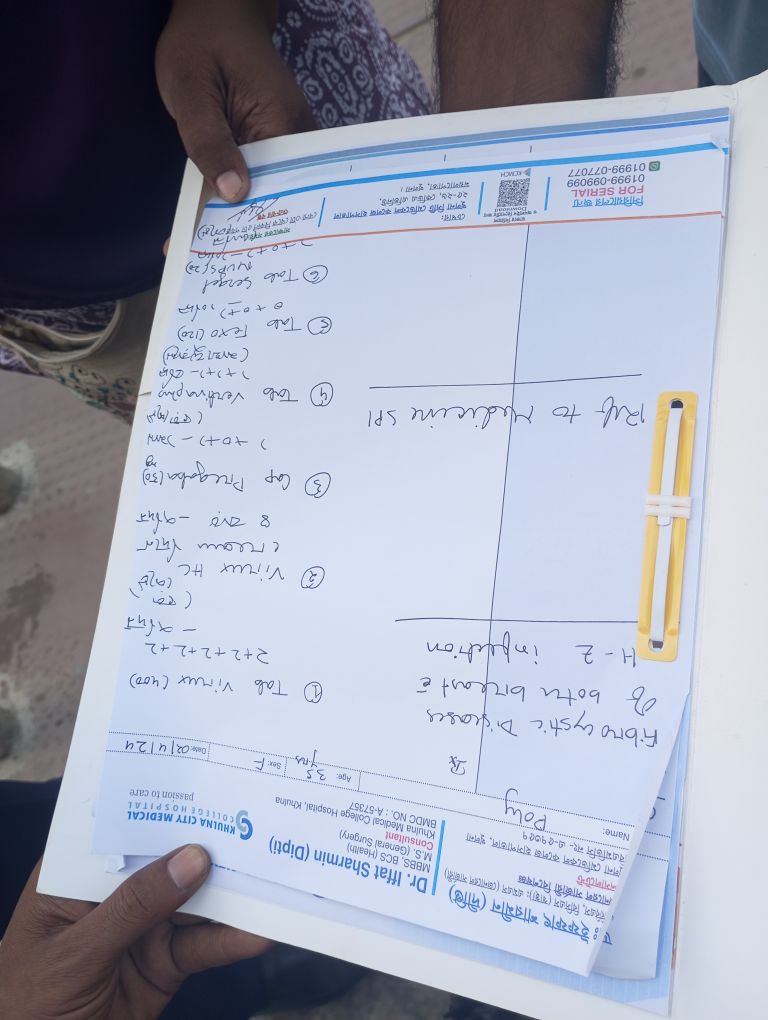 ডাঃ ইফফাৎ শারমীন (দীপ্তি)
এমবিবিএস, বিসিএস (স্বাস্থ্য); এমএস (জেনারেল সার্জারী)
জেনারেল সার্জারী বিশেষজ্ঞ
কনসালটেন্ট
খুলনা মেডিকেল কলেজ হাসপাতাল, খুলনা
বিএমডিসি নং- এ-৫৭৩৫৭
Dr. Iffat Sharmin (Dipti)
MBBS, BCS (Health)
M.S. (General Surgery)
Consultant
Khulna Medical College Hospital, Khulna
BMDC NO. : A-57357
KHULNA CITY MEDICAL
COLLEGE HOSPITAL
passion to care
Name: Poly
Age: 35 yrs
Sex: F
Date: 02/4/24
Rx
Fibrocystic Diseases
of both breast c̄
H-Z infection
Ref to Medicine SPl
① Tab Virux (400)
2+2+2+2+2
- ৭ দিন
② Virux HC
cream দিনে
৪ বার - ৭দিন
③ Cap Pregaba (50)
১+০+১ - ১মাস
④ Tab Vertina plus
১+১+১-
(মাথা ঘুরালে)
⑤ Tab Fexo (120)
০+০+১
⑥ Tab Sergel
MUPS (20)
১+০+১ -
সিরিয়ালের জন্য
FOR SERIAL
01999-099099
01999-077077
Download
KCMCH
চেম্বার:
খুলনা সিটি মেডিকেল কলেজ হাসপাতাল
২৫-২৬, কেডিএ এভিনিউ,
ময়লাপোতা, খুলনা।
সাক্ষাতের সময়:
শুক্রবার বন্ধ